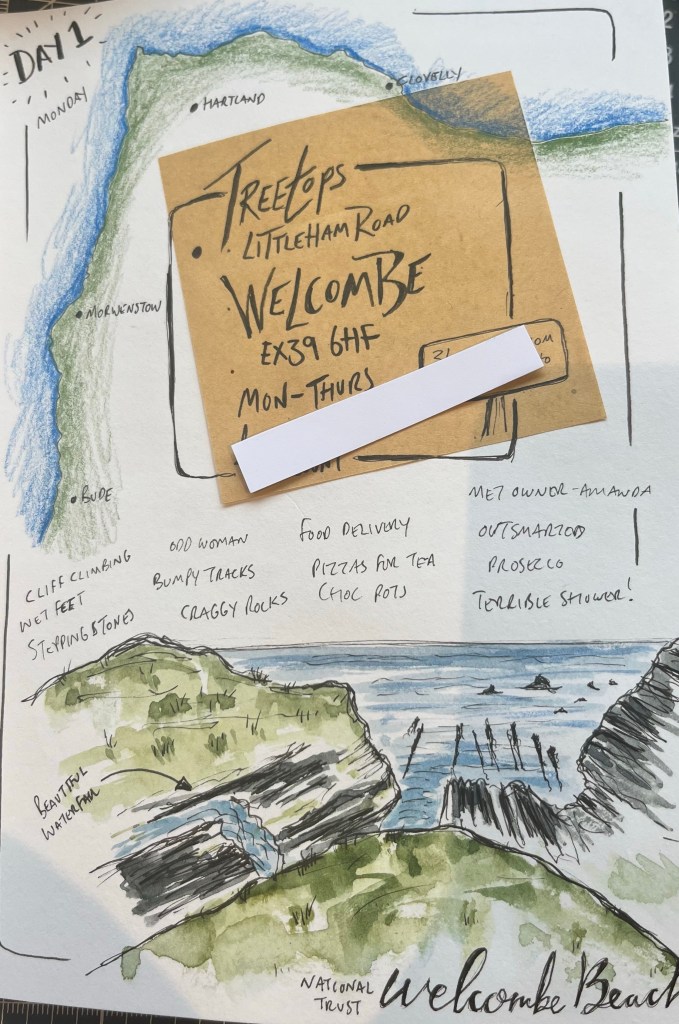 DAY 1
MONDAY
CLOVELLY
HARTLAND
TREETOPS
LITTLEHAM ROAD
WELCOMBE
EX39 6HF
MON-THURS
MORWENSTOW
BUDE
CLIFF CLIMBING
WET FEET
STEPPING STONES
ODD WOMAN
BUMPY TRACKS
CRAGGY ROCKS
FOOD DELIVERY
PIZZAS FOR TEA
CHOC POTS
MET OWNER - AMANDA
OUTSMARTED
PROSECCO
TERRIBLE SHOWER!
BEAUTIFUL
WATERFALL
NATIONAL
TRUST
Welcombe Beach